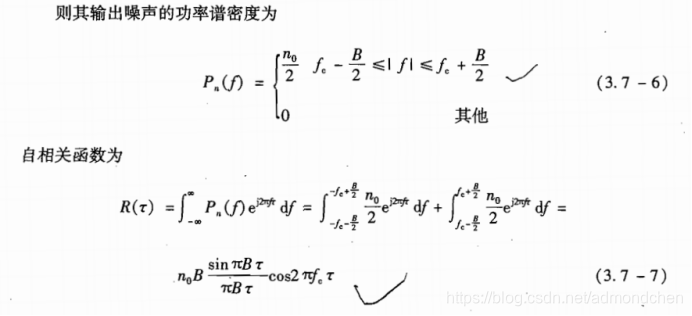 则其输出噪声的功率谱密度为
P_n(f) = { n_0/2  f_c - B/2 ≤| f |≤ f_c + B/2
0  其他  (3.7 - 6)
自相关函数为
R(τ) = ∫_{-∞}^{∞} P_n(f) e^{j2πfτ} df = ∫_{-f_c-B/2}^{-f_c+B/2} n_0/2 e^{j2πfτ} df + ∫_{f_c-B/2}^{f_c+B/2} n_0/2 e^{j2πfτ} df =
n_0 B sin πBτ/πBτ cos2πf_c τ  (3.7 - 7)
https://blog.csdn.net/admondchen